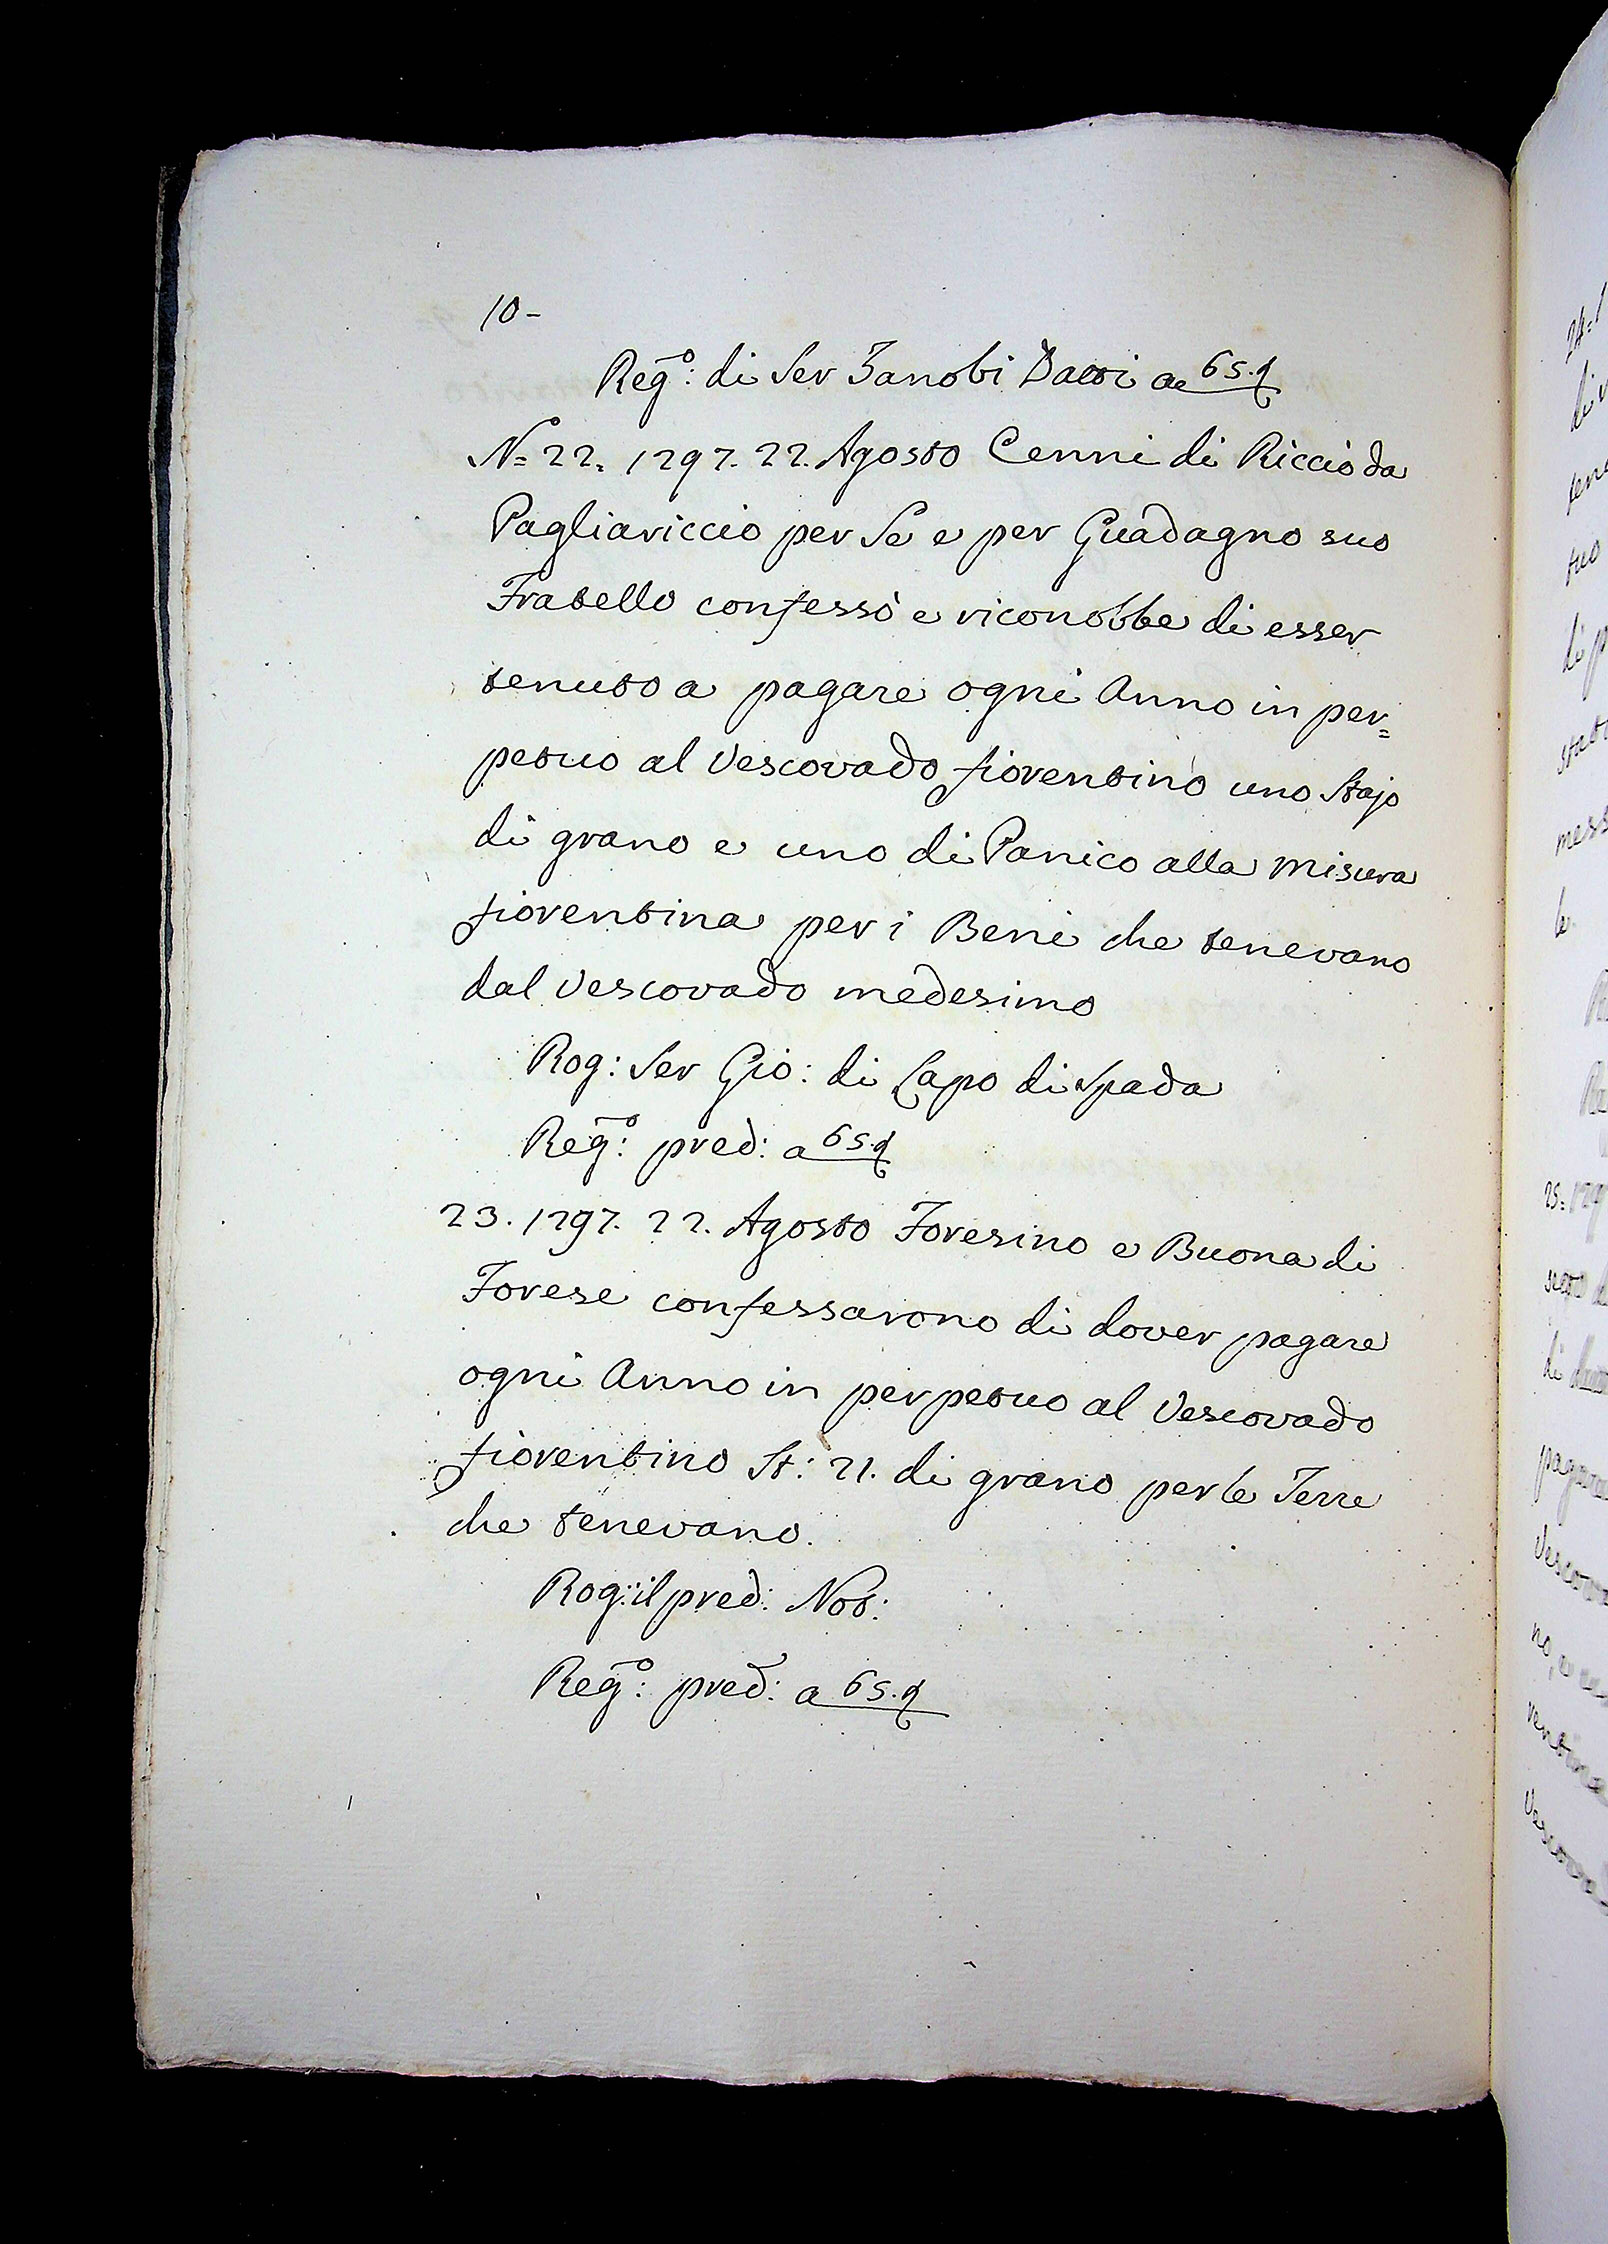 10-
Reg.º: di Ser Zanobi Dassi a 65.
Nº 22. 1297. 22. Agosto Cenni di Riccio da
Pagliariccio per Se e per Guadagno suo
Fratello confessò e riconobbe di esser
tenuto a pagare ogni Anno in per=
petuo al Vescovado fiorentino uno Stajo
di grano e uno di Panico alla misura
fiorentina per i Beni che tenevano
dal Vescovado medesimo
Rog: Ser Gio: di Lapo di Spada
Reg.º: pred: a 65.
23. 1297. 22. Agosto Foresino e Buona di
Forese confessarono di dover pagare
ogni Anno in perpetuo al Vescovado
fiorentino St: 21. di grano per le Terre
che tenevano.
Rog: il pred: Not:
Reg.º: pred: a 65.